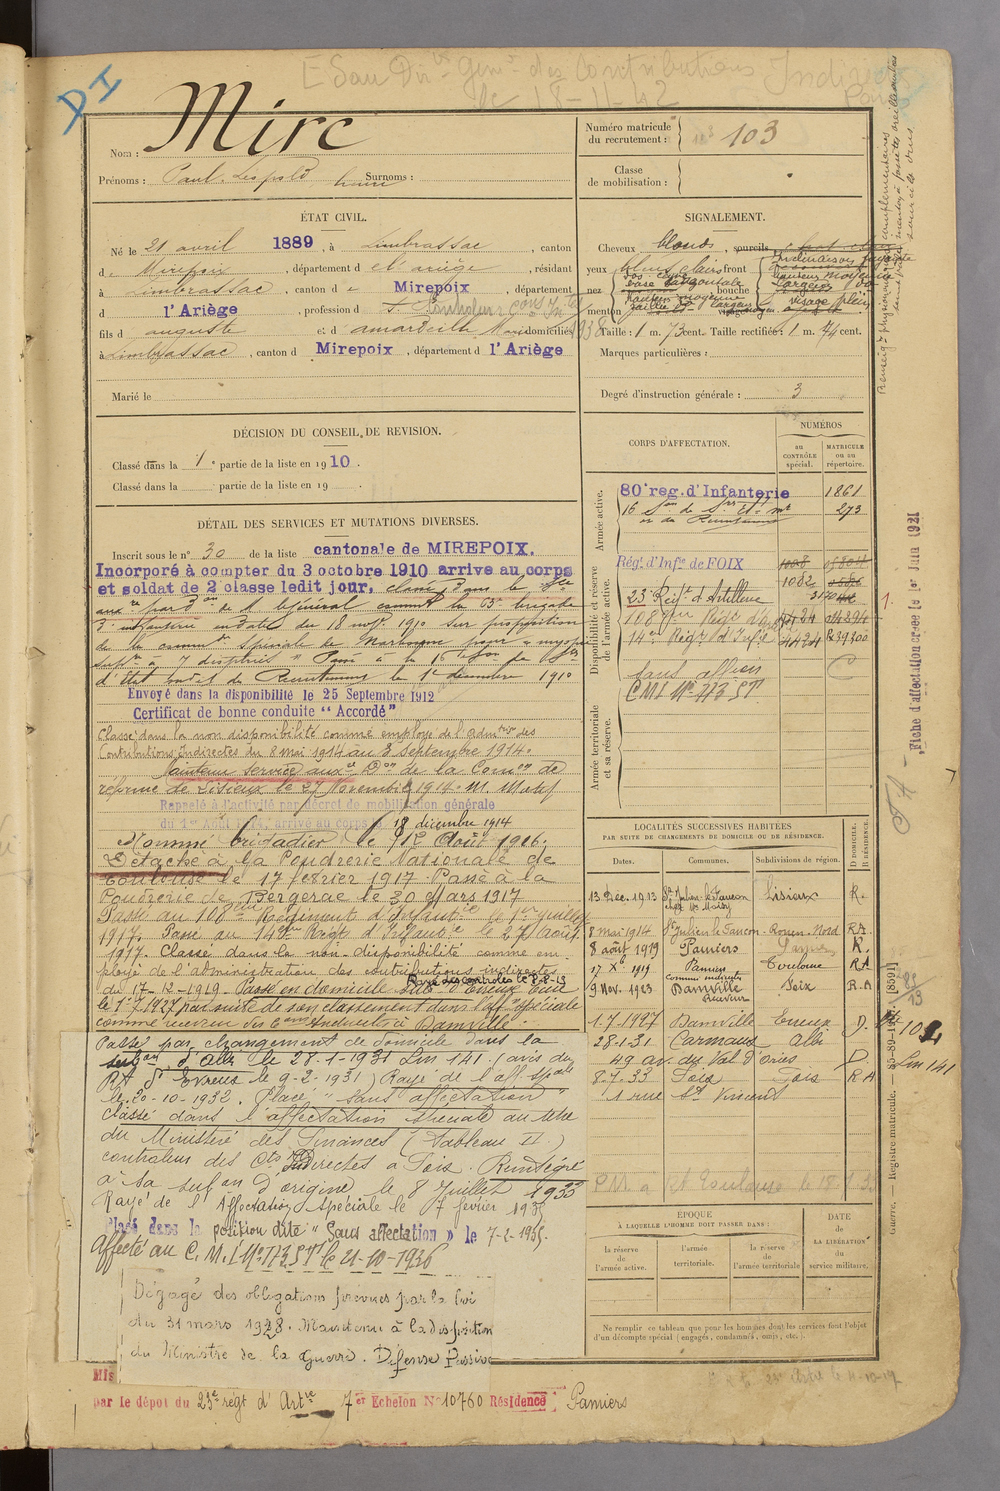 DI
E San Dir. Gén. des Contributions Indirectes
le 18-11-42
Nom : Mirc
Prénoms : Paul Léopold Henri Surnoms :
Numéro matricule
du recrutement : 103
Classe
de mobilisation :
ÉTAT CIVIL.
Né le 21 avril 1889, à Limbrassac, canton
de Mirepoix, département de l'ariège, résidant
à Limbrassac, canton de Mirepoix, département
d l'Ariège, profession d
fils d auguste et d domiciliés
à Limbrassac, canton d Mirepoix, département d l'Ariège
Marié le
SIGNALEMENT.
Cheveux blonds, sourcils
yeux bleus clairs front
nez bouche
menton visage plein
Taille : 1 m. 73 cent. Taille rectifiée : 1 m. 74 cent.
Marques particulières :
Degré d'instruction générale : 3
DÉCISION DU CONSEIL DE REVISION.
Classé dans la 1e partie de la liste en 1910.
Classé dans la partie de la liste en 19 .
DÉTAIL DES SERVICES ET MUTATIONS DIVERSES.
Inscrit sous le n° 30 de la liste cantonale de MIREPOIX.
Incorporé à compter du 3 octobre 1910 arrive au corps
et soldat de 2 classe ledit jour, classé dans le Sce
aux re par Don de M le Général commt la 63e brigade
d'infanterie en date du 18 nov. 1910 sur proposition
de la common spéciale de Narbonne pour " myopie
supre à 7 dioptries " Passé à la 16e Son de Sres
d'état major de Recrutement le 1er décembre 1910
Envoyé dans la disponibilité le 25 Septembre 1912
Certificat de bonne conduite "Accordé"
Classé dans la non disponibilité comme employé de l'admtion des
Contributions Indirectes du 8 mai 1914 au 3 Septembre 1914.
Maintenu service auxre Don de la Comon de
réforme de Lisieux le 27 Novembre 1914. M. Motif
Rappelé à l'activité par décret de mobilisation générale
du 1er Août 1914, arrivé au corps le 18 décembre 1914
Nommé brigadier le 12 Août 1916.
Détaché à la Poudrerie Nationale de
Toulouse le 17 février 1917. Passé à la
Poudrerie de Bergerac le 30 Mars 1917
Passé au 108e Régiment d'Infantie le 1er juillet
1917. Passé au 14eme Régt d'Infantie le 27 Août
1917. Classé dans la non-disponibilité comme em-
ployé de l'administration des contributions indirectes
du 17-12-1919. Passé en domicile Sub d'Evreux Eure
le 1-7-1927 par suite de son classement dans l'affon spéciale
comme receveur des Cons Indirectes à Damville.
Passé par changement de domicile dans la
subon d'Albi le 28-1-1931 Lm 141 (avis du
RA d'Evreux le 9-2-1931) Rayé de l'aff. spale
le 20-10-1932. Placé "sans affectation"
Classé dans l'affectation spéciale au titre
du Ministère des Finances (Tableau II.)
controleur des Cts Indirectes à Foix. Renseigné
à sa subon d'origine le 8 Juillet 1933
Rayé de l'Affectation spéciale le 7 février 1935
Placé dans la position dite "Sans affectation" le 7-2-1935.
Affecté au C.M.I No 173 ST le 21-10-1936
Dégagé des obligations prévues par la loi
du 31 mars 1928. Maintenu à la disposition
du Ministre de la Guerre. Défense Passive
Mis
par le dépot du 23e régt d'Artie 7er Echelon No 10760 Résidence Pamiers
CORPS D'AFFECTATION.
NUMÉROS
au
CONTRÔLE
spécial.
MATRICULE
ou au
répertoire.
Armée active.
80e reg. d'Infanterie 1861
16 Son de Sres d'Et mr 273
et de Recrutement
Disponibilité et réserve
de l'armée active.
Régt d'Infie de FOIX 1008
1082
23e Régt d'Artillerie
108eme Régt d'Infie 4424
14eme Régt d'Infie 4424
sans affecon
C.M.I No 173 ST
Armée territoriale
et sa réserve.
LOCALITÉS SUCCESSIVES HABITÉES
PAR SUITE DE CHANGEMENTS DE DOMICILE OU DE RÉSIDENCE.
Dates. Communes. Subdivisions de région. D DOMICILE. R RÉSIDENCE.
13 Déc. 1913 St Julien le Faucon Lisieux R.
8 mai 1914 St Julien le Faucon Rouen-Nord RA
8 août 1919 Pamiers R.
17 Xe 1919 Pamiers Toulouse RA
9 Nov. 1923 Damville Foix R.A
1.7.1927 Damville Evreux D.
28-1-31 Carmaux Albi
49 av. du Val d'Oriès D.
8.7.33 Foix Foix RA
1 rue St Vincent
Lm 141
EPOQUE
À LAQUELLE L'HOMME DOIT PASSER DANS :
la réserve
de
l'armée active.
l'armée
territoriale.
la réserve
de
l'armée territoriale
DATE
de
LA LIBÉRATION
du
service militaire.
Ne remplir ce tableau que pour les hommes dont les services font l'objet
d'un décompte spécial (engagés, condamnés, omis, etc.).
Fiche d'affection créée le 1er Juin 1921
Guerre. — Registre matricule.